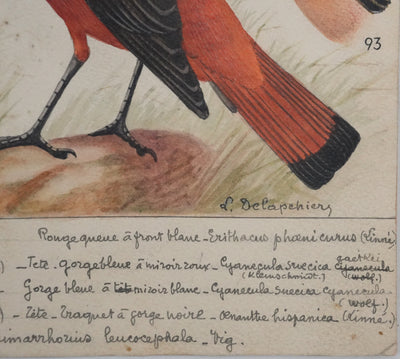 93
L. Delapchier
Rougequeue à front blanc - Erithacus phœnicurus (Linné)
) - Tete. gorgebleue à miroir roux - Cyanecula suecica gaetkei
(Kleinschmidt.) Cyanecula (wolf.)
- Gorge bleue à miroir blanc - Cyanecula suecica cyanecula
(wolf.)
) - Tête - Traquet à gorge noire - Œnanthe hispanica (Linné.)
imarrhornis leucocephala - Vig.